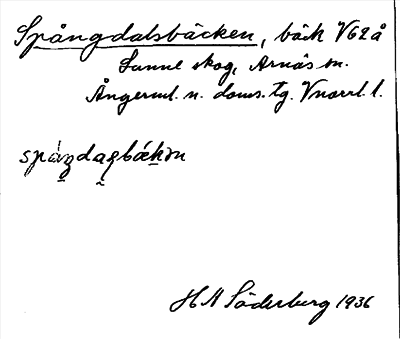 Spångdalsbäcken, bäck V62å
Sunne skog, Arnäs sn.
Ångerml. n. doms. tg. Vnorrl. l.
H A Söderberg 1936